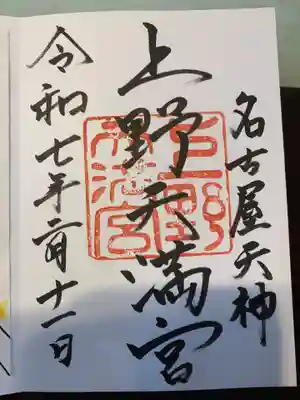 名古屋天神
上野天満宮
令和七年二月十一日
上野
天満宮